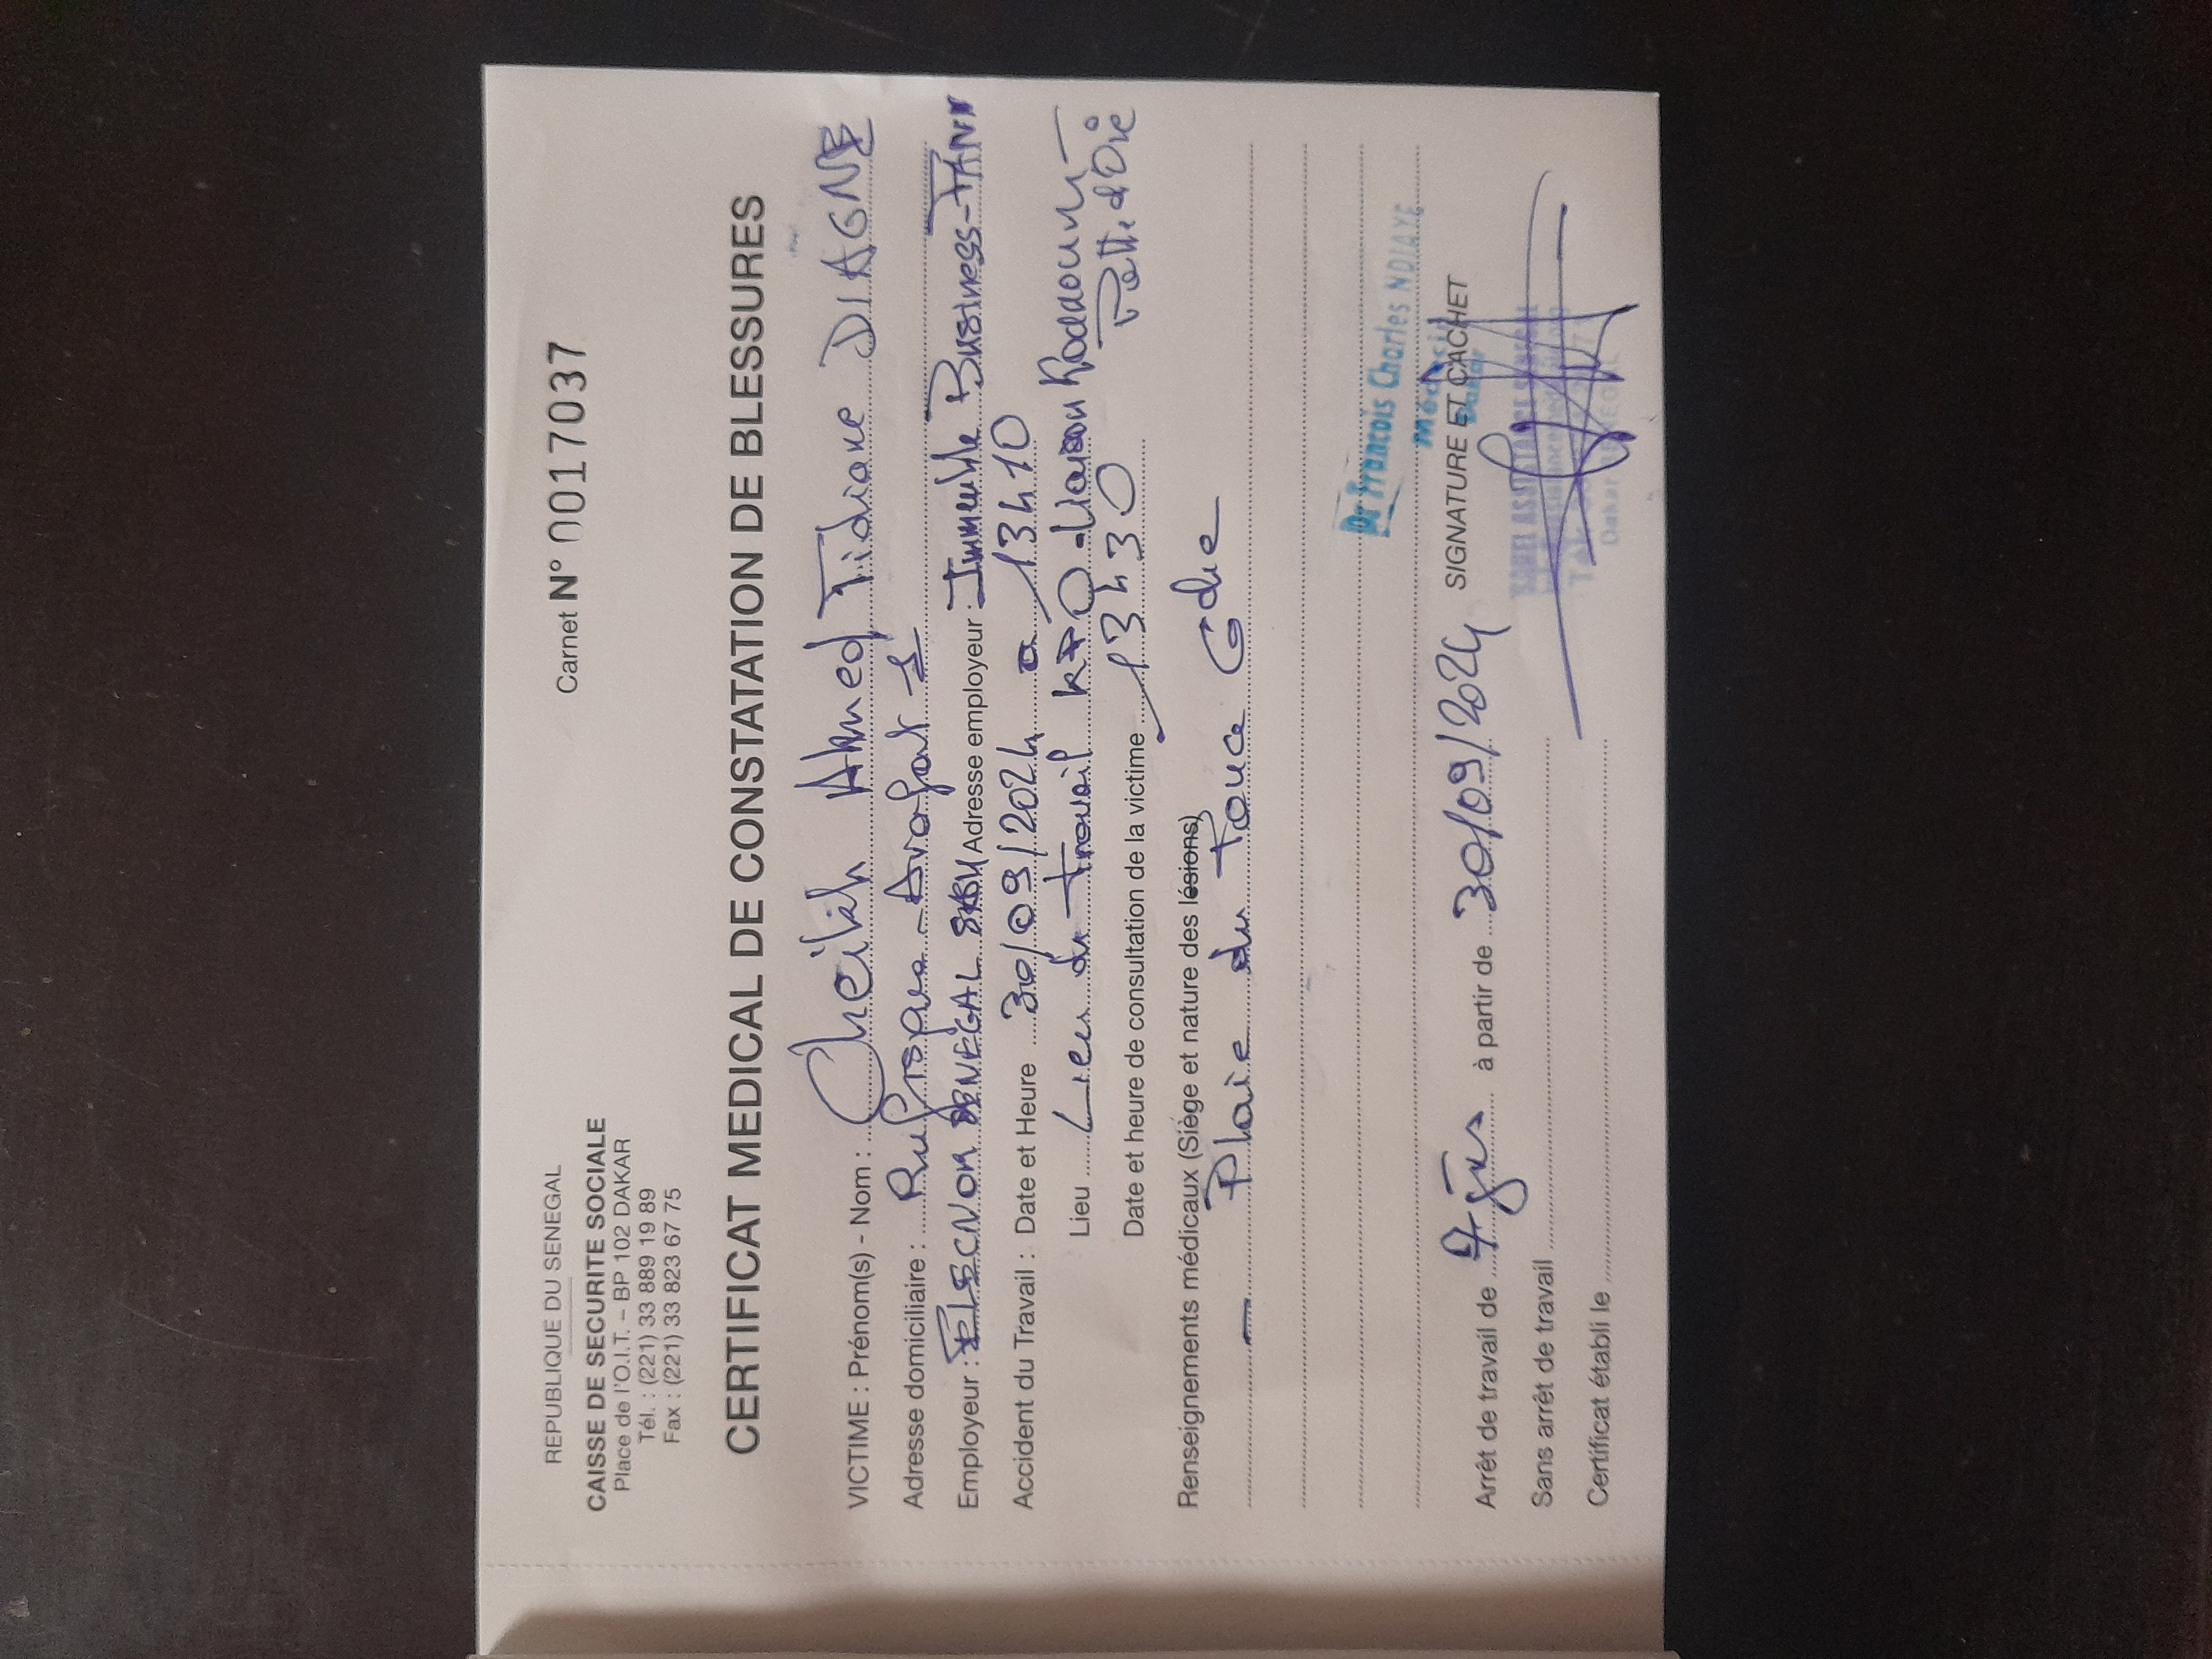 REPUBLIQUE DU SENEGAL
CAISSE DE SECURITE SOCIALE
Place de l'O.I.T. – BP 102 DAKAR
Tél. : (221) 33 889 19 89
Fax : (221) 33 823 67 75
Carnet N° 0017037
CERTIFICAT MEDICAL DE CONSTATATION DE BLESSURES
VICTIME : Prénom(s) - Nom : Cheikh Ahmed Tidiane DIAGNE
Adresse domiciliaire : Arafat 1
Employeur : SENEGAL Adresse employeur : Immeuble Business-TANN
Accident du Travail : Date et Heure 30/09/2024 a 13h10
Lieu Lieu du travail
Patte d'Oie
Date et heure de consultation de la victime 13h30
Renseignements médicaux (Siège et nature des lésions)
- Plaie du Pouce Gche
Dr Francois Charles NDIAYE
Médecin
Dakar
Arrêt de travail de jrs à partir de 30/09/2024 SIGNATURE ET CACHET
Sans arrêt de travail
Certificat établi le